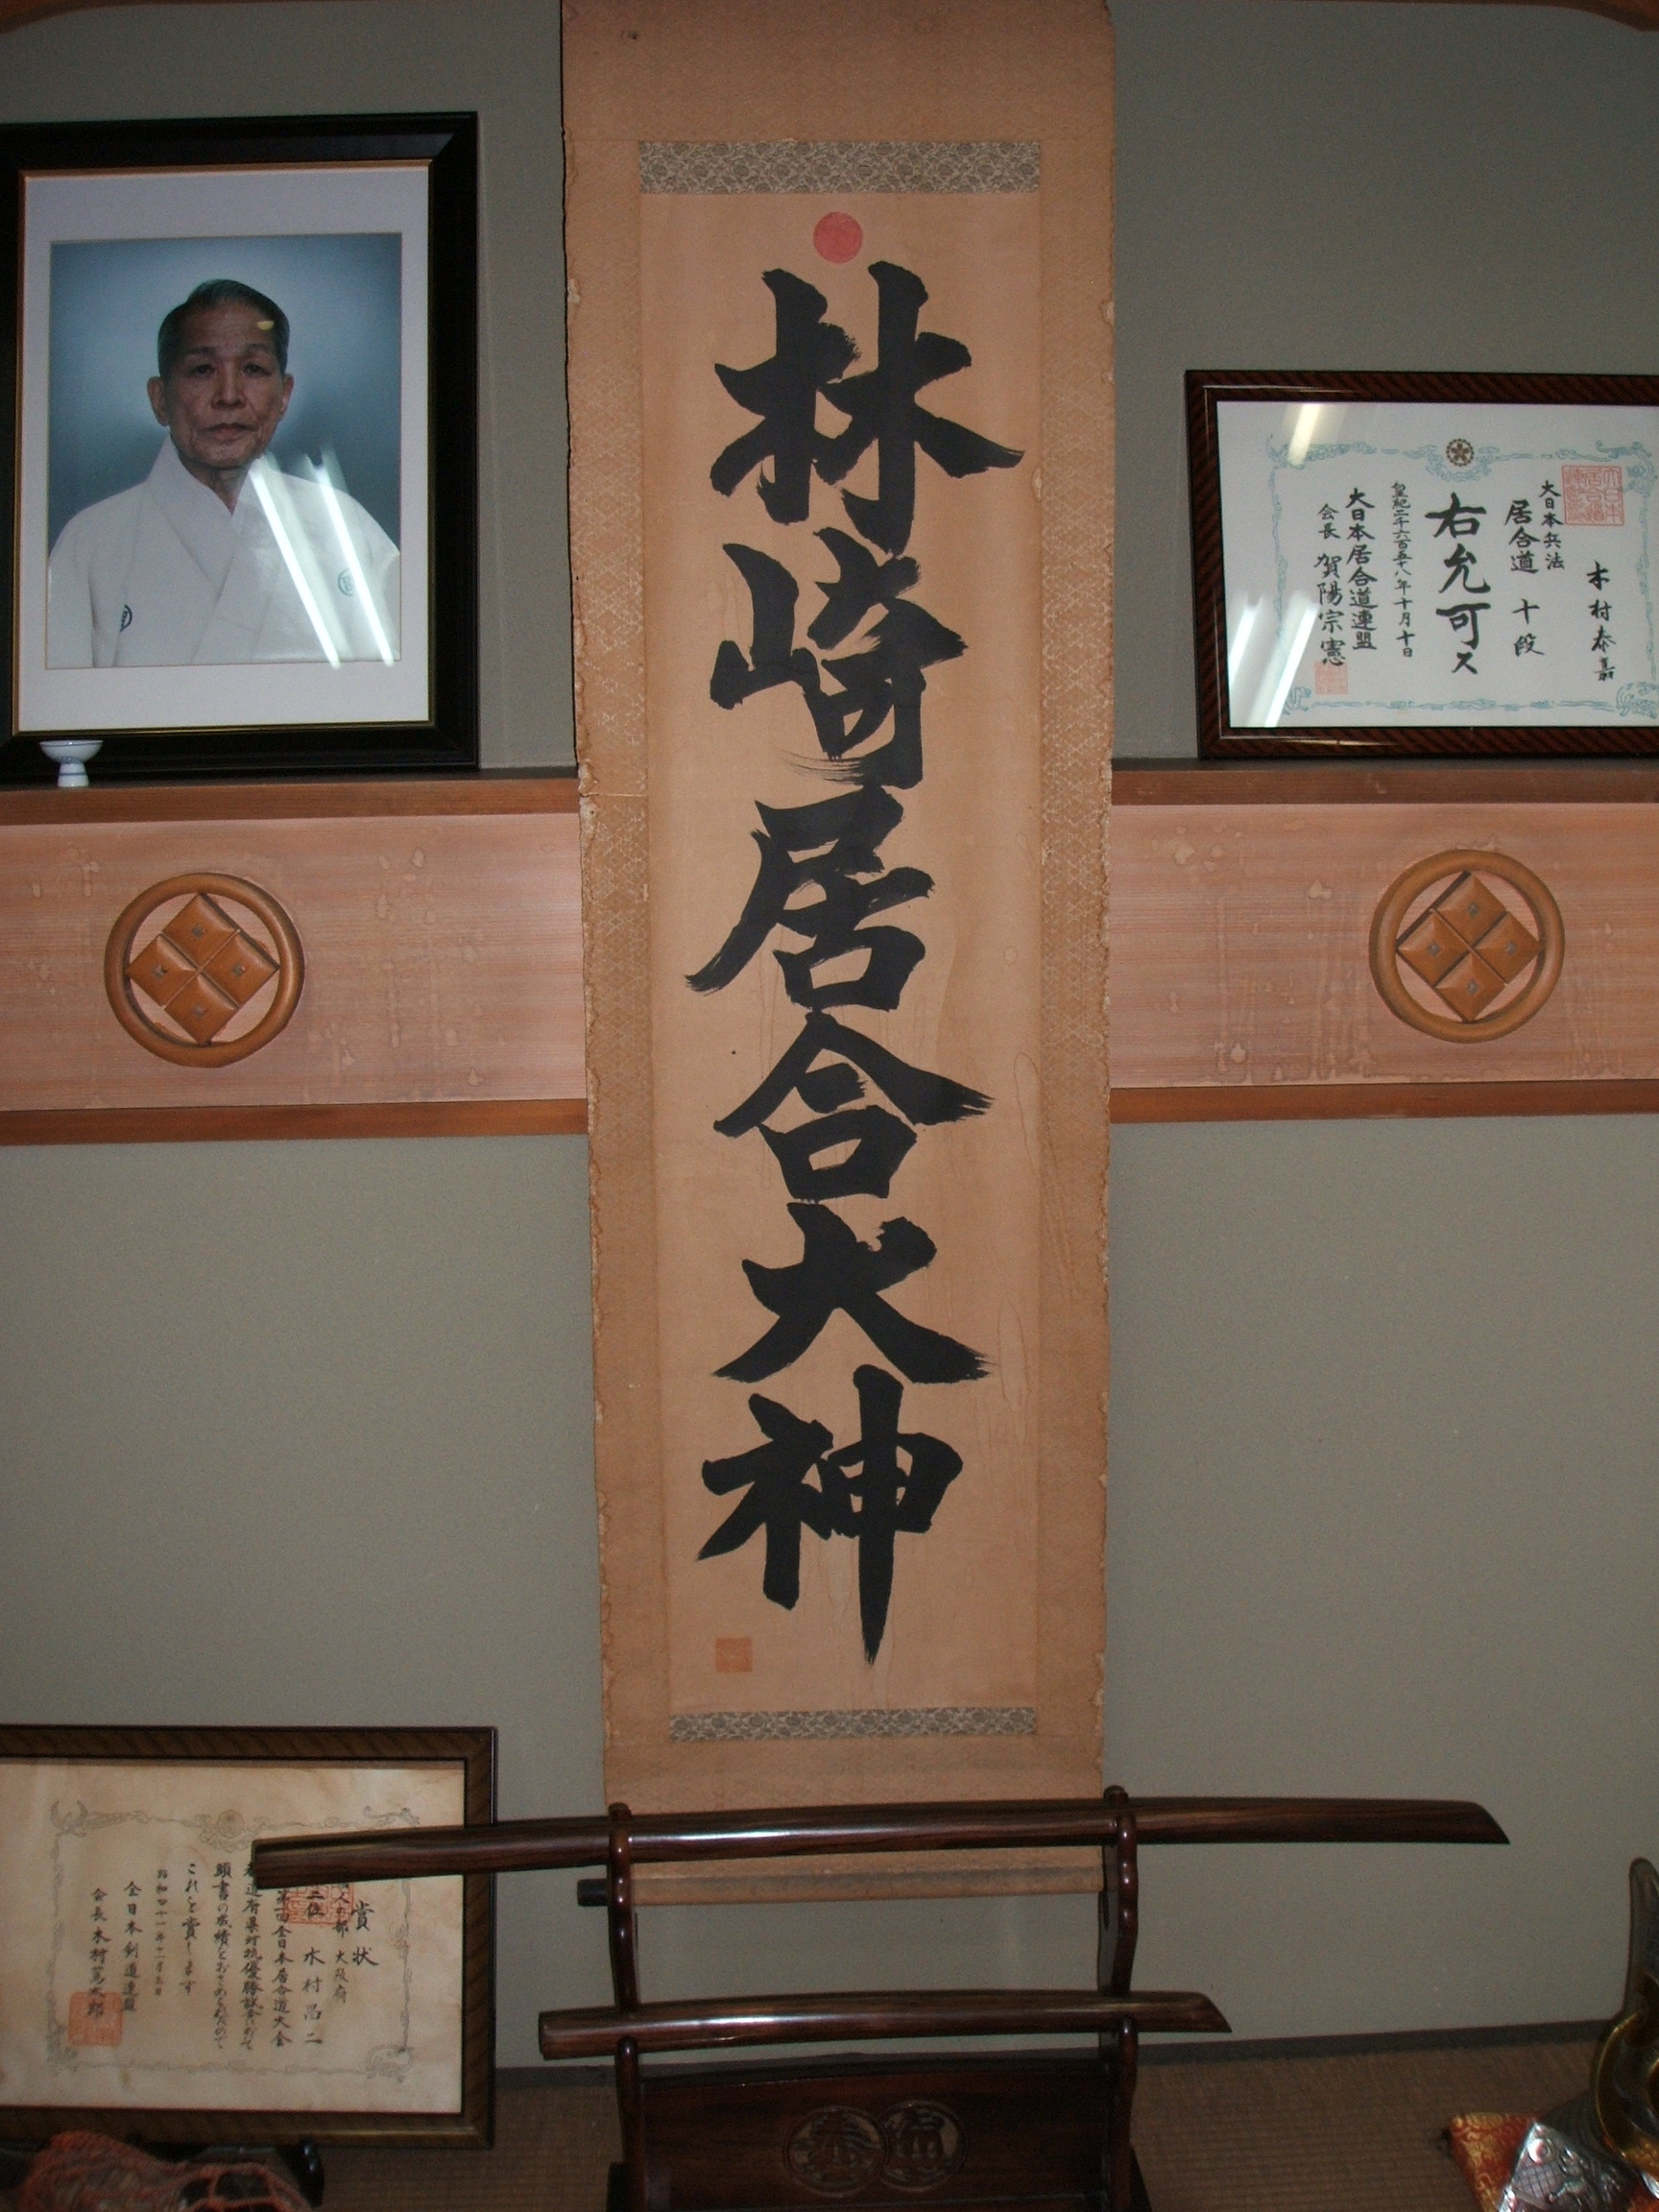 林崎居合大神
木村泰嘉
大日本兵法
居合道 十段
右允可ス
皇紀二千六百五十八年十月十日
大日本居合道連盟
会長 賀陽宗憲
賞状
人の部 大阪府
二位 木村昌二
第一回全日本居合道大会
道府県対抗優勝試合に於て
頭書の成績をおさめられたので
これを賞します
昭和四十一年十一月三日
全日本剣道連盟
会長 木村篤太郎